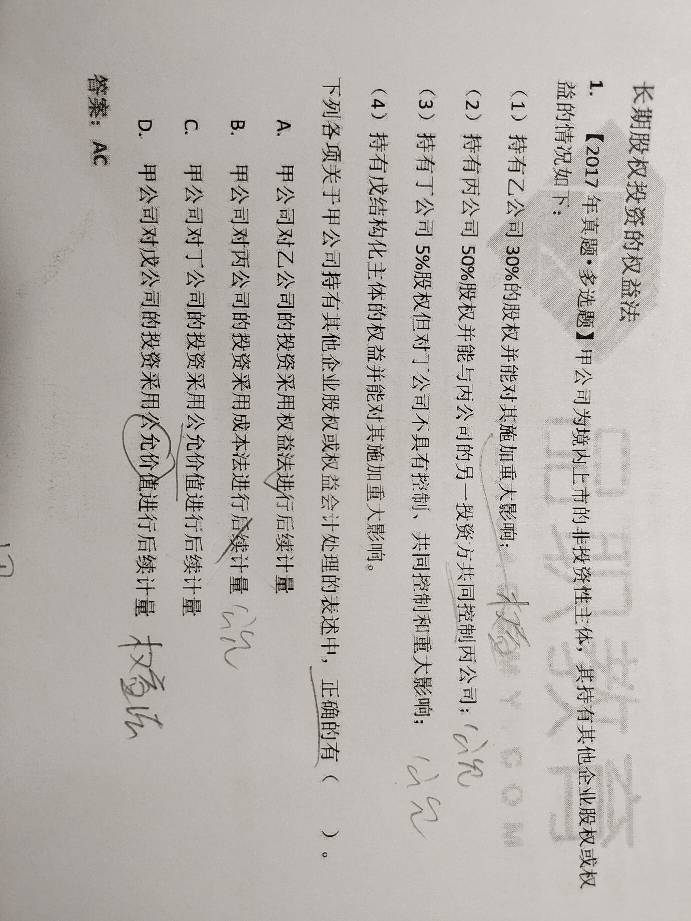 长期股权投资的权益法
1. 【2017 年真题•多选题】甲公司为境内上市的非投资性主体，其持有其他企业股权或权
益的情况如下：
（1）持有乙公司 30%的股权并能对其施加重大影响； 权益
（2）持有丙公司 50%股权并能与丙公司的另一投资方共同控制丙公司； 公允
（3）持有丁公司 5%股权但对丁公司不具有控制、共同控制和重大影响； 公允
（4）持有戊结构化主体的权益并能对其施加重大影响。
下列各项关于甲公司持有其他企业股权或权益会计处理的表述中，正确的有（ ）。
A. 甲公司对乙公司的投资采用权益法进行后续计量
B. 甲公司对丙公司的投资采用成本法进行后续计量 公允
C. 甲公司对丁公司的投资采用公允价值进行后续计量
D. 甲公司对戊公司的投资采用公允价值进行后续计量 权益法
答案：AC
品职教育